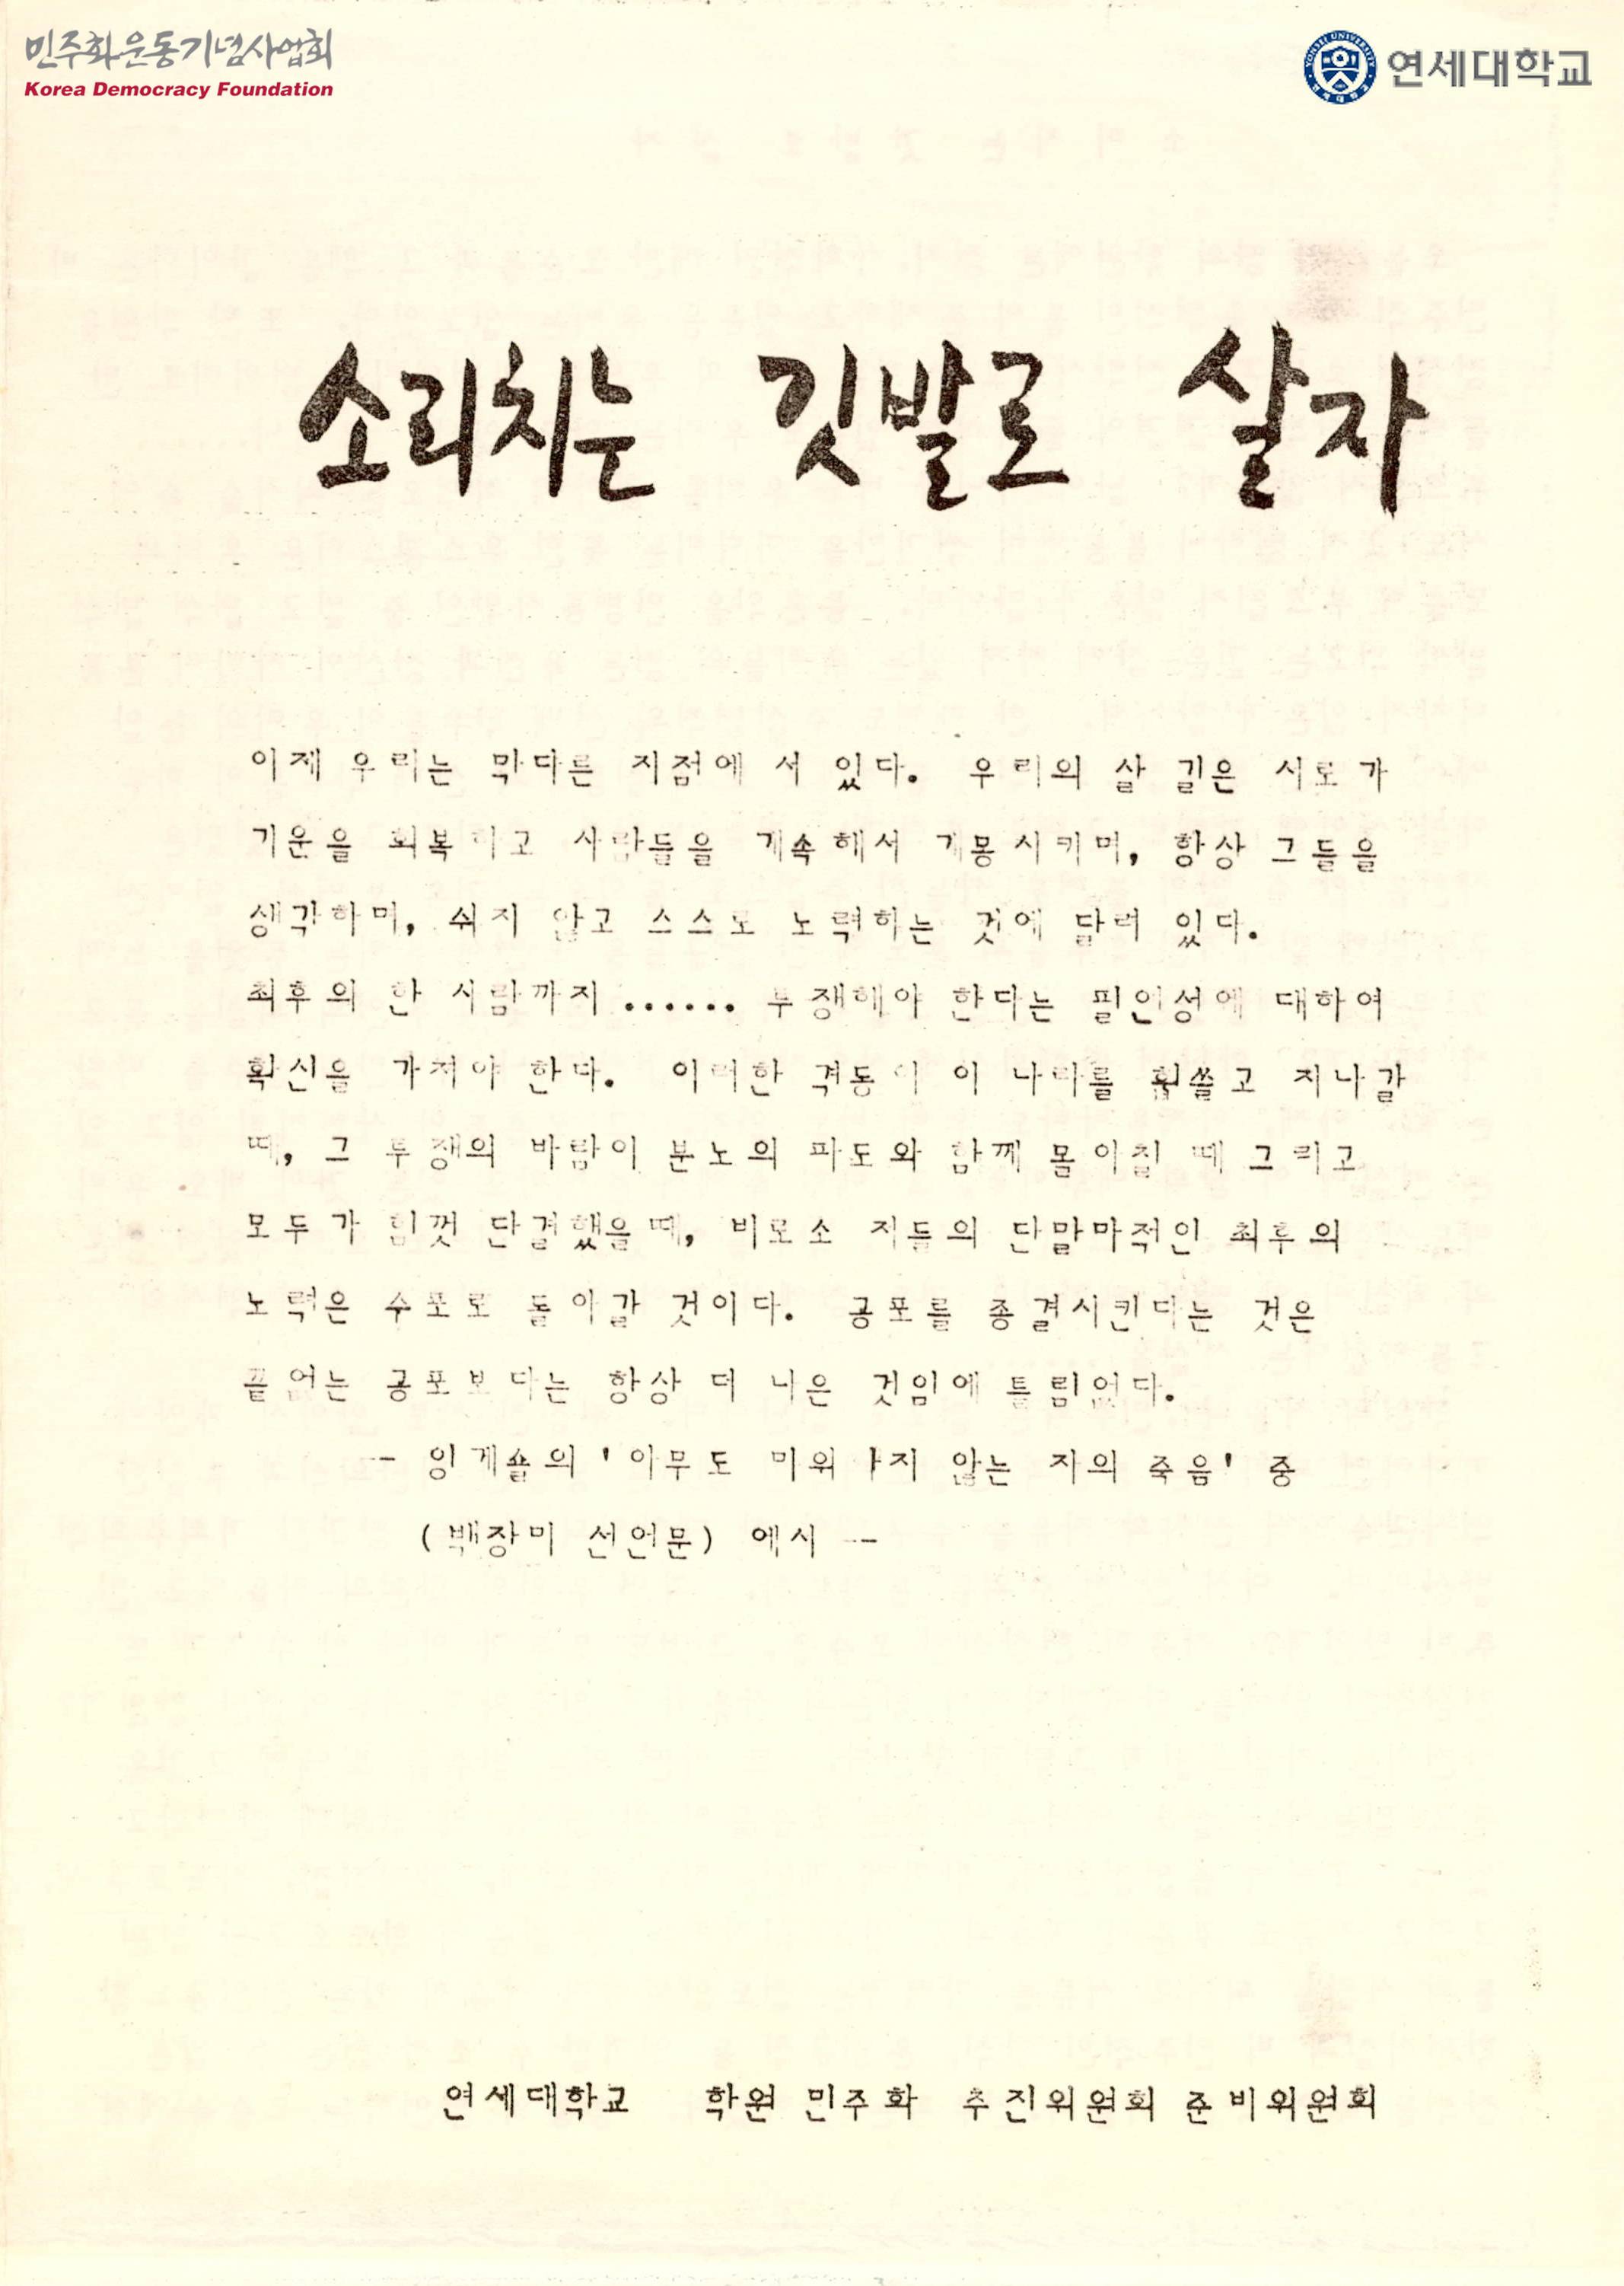 민주화운동기념사업회
Korea Democracy Foundation
YONSEI UNIVERSITY
연세대학교
소리치는 깃발로 살자
이제 우리는 막다른 지점에 서 있다. 우리의 살 길은 서로가
기운을 회복하고 사람들을 계속해서 계몽시키며, 항상 그들을
생각하며, 쉬지 않고 스스로 노력하는 것에 달려 있다.
최후의 한 사람까지 ...... 투쟁해야 한다는 필인성에 대하여
확신을 가져야 한다. 이러한 격동이 이 나라를 휩쓸고 지나갈
때, 그 투쟁의 바람이 분노의 파도와 함께 몰아칠 때 그리고
모두가 힘껏 단결했을 때, 비로소 저들의 단말마적인 최후의
노력은 수포로 돌아갈 것이다. 공포를 종결시킨다는 것은
끝없는 공포보다는 항상 더 나은 것임에 틀림없다.
- 잉게숄의 '아무도 미워하지 않는 자의 죽음' 중
(백장미 선언문) 에서 --
연세대학교 학원 민주화 추진위원회 준비위원회